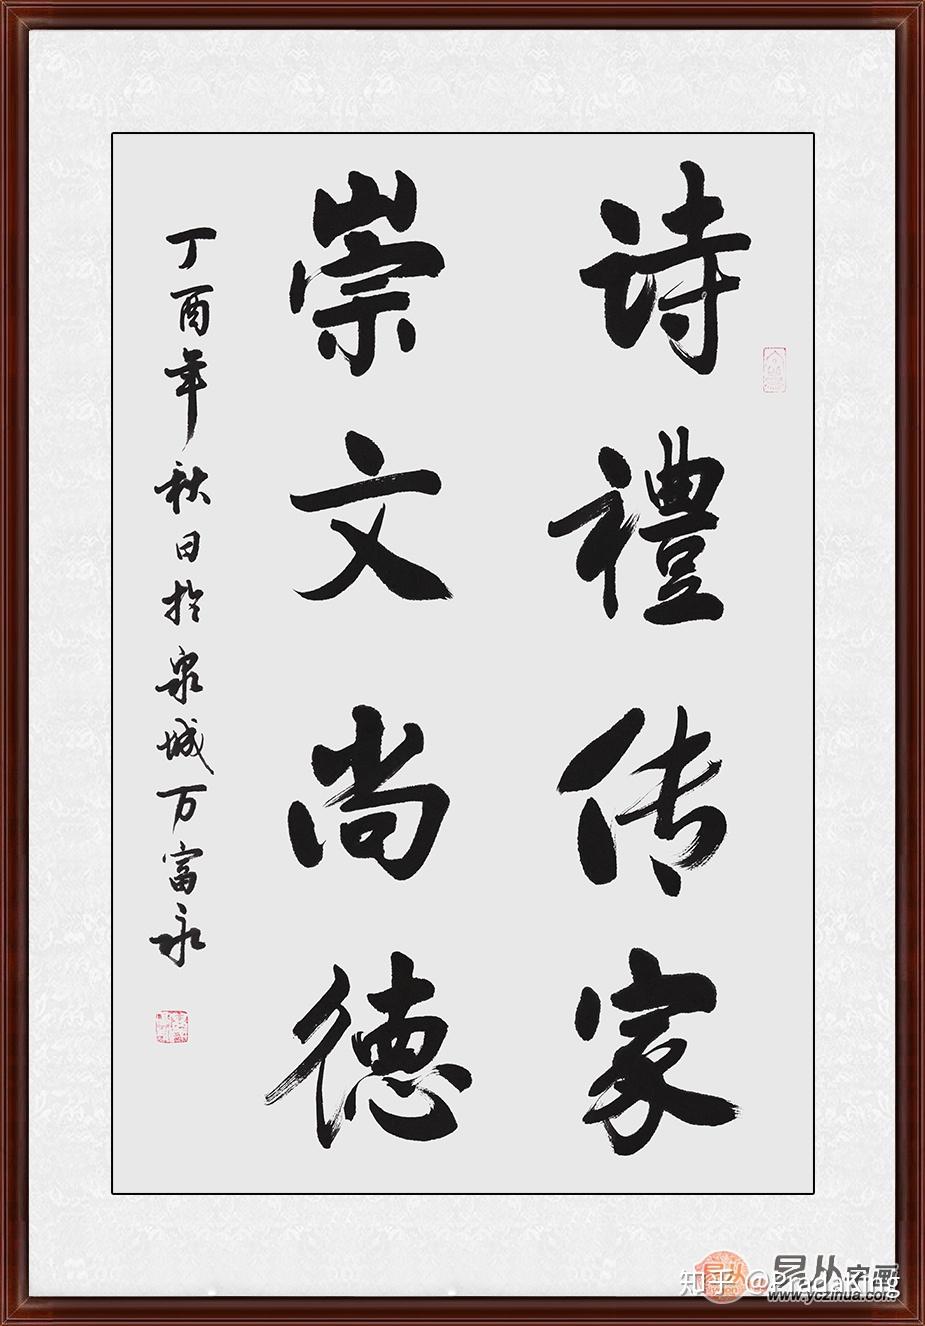 诗禮传家
崇文尚德
丁酉年秋日於泉城万富永
知乎 @PradaKing
易从字画
www.yczihua.com